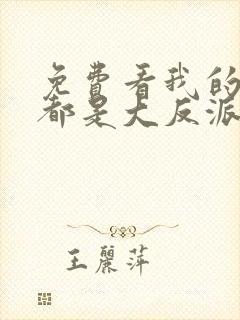 免费看我的
都是大反派
王麗萍